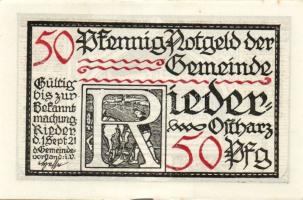 50 Pfennig Notgeld der
Gemeinde
Rieder-
Ostharz
50 Pfg
Gültig
bis zur
Bekannt
machung
Rieder
d. 1. Sept 21
d. Gemeinde-
vorstand: i.V.